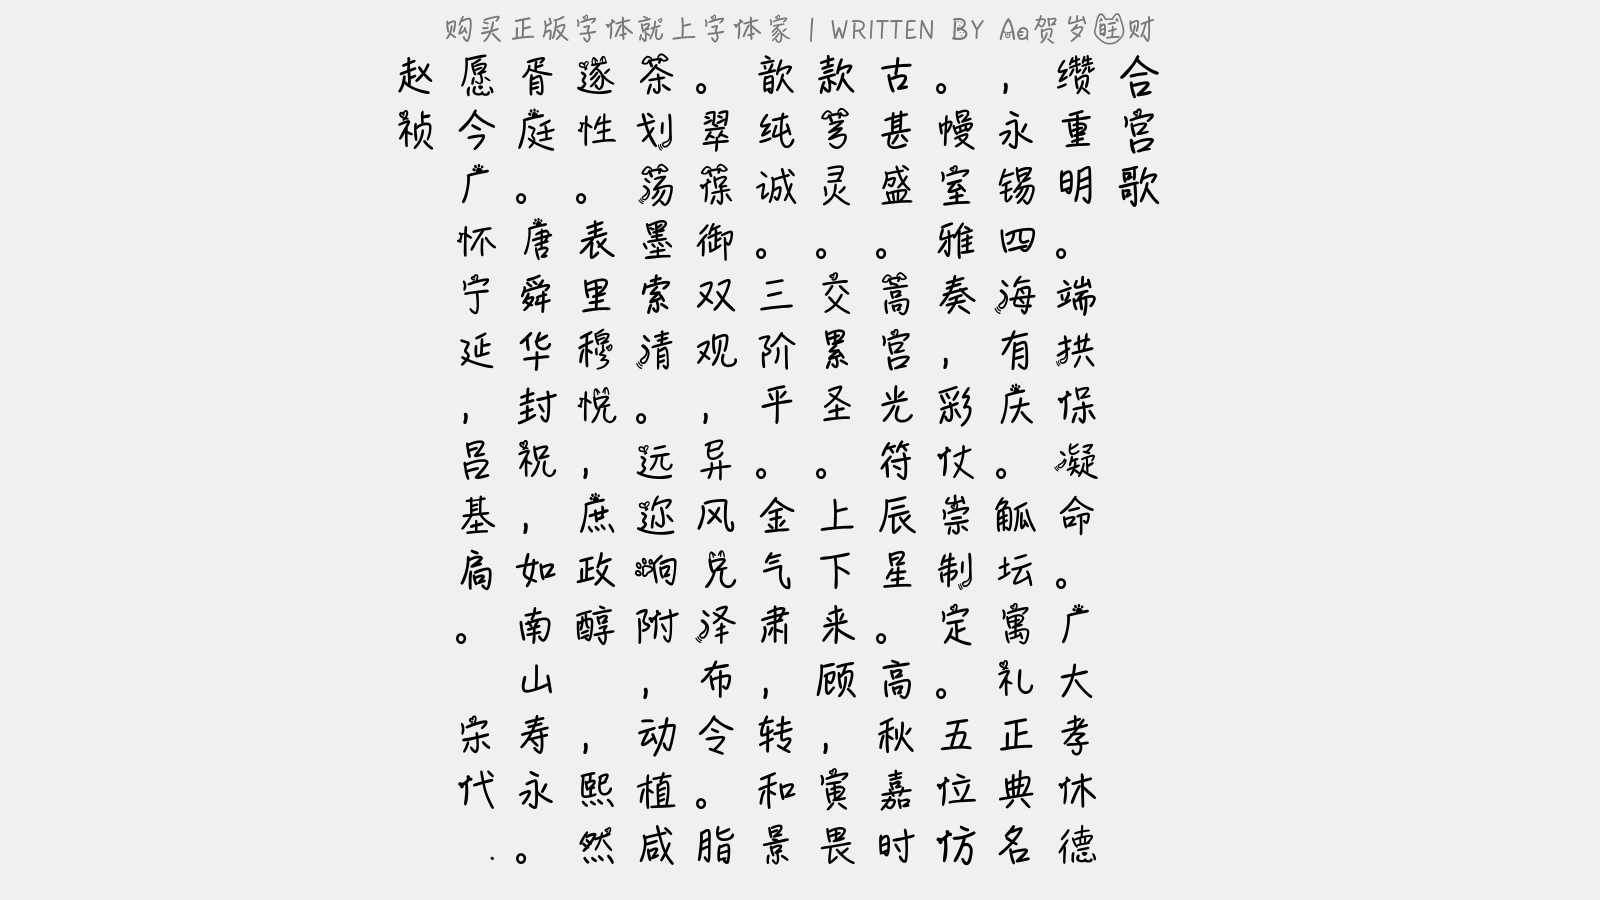 购买正版字体就上字体家 | WRITTEN BY Aa贺岁旺财
合宫歌
缵重明。端拱保凝命。广大孝休德
，永锡四海有庆。觚坛寓礼正典名
。幔室雅奏，彩仗崇制定。五位仿
古甚盛蒿宫光符辰星。高秋嘉时
款芎灵。交累圣。上下来顾，寅畏
歆纯诚。三阶平。金气肃，转和景
。翠葆御双观异风兑泽布令。脂
茶划荡墨索清。远迩响附，动植咸
遂性。表里穆悦，庶政醇 ，熙然
胥庭。舜华封祝，如南山寿永。
愿今广怀宁延，吕基扃。 宋代·
赵祯